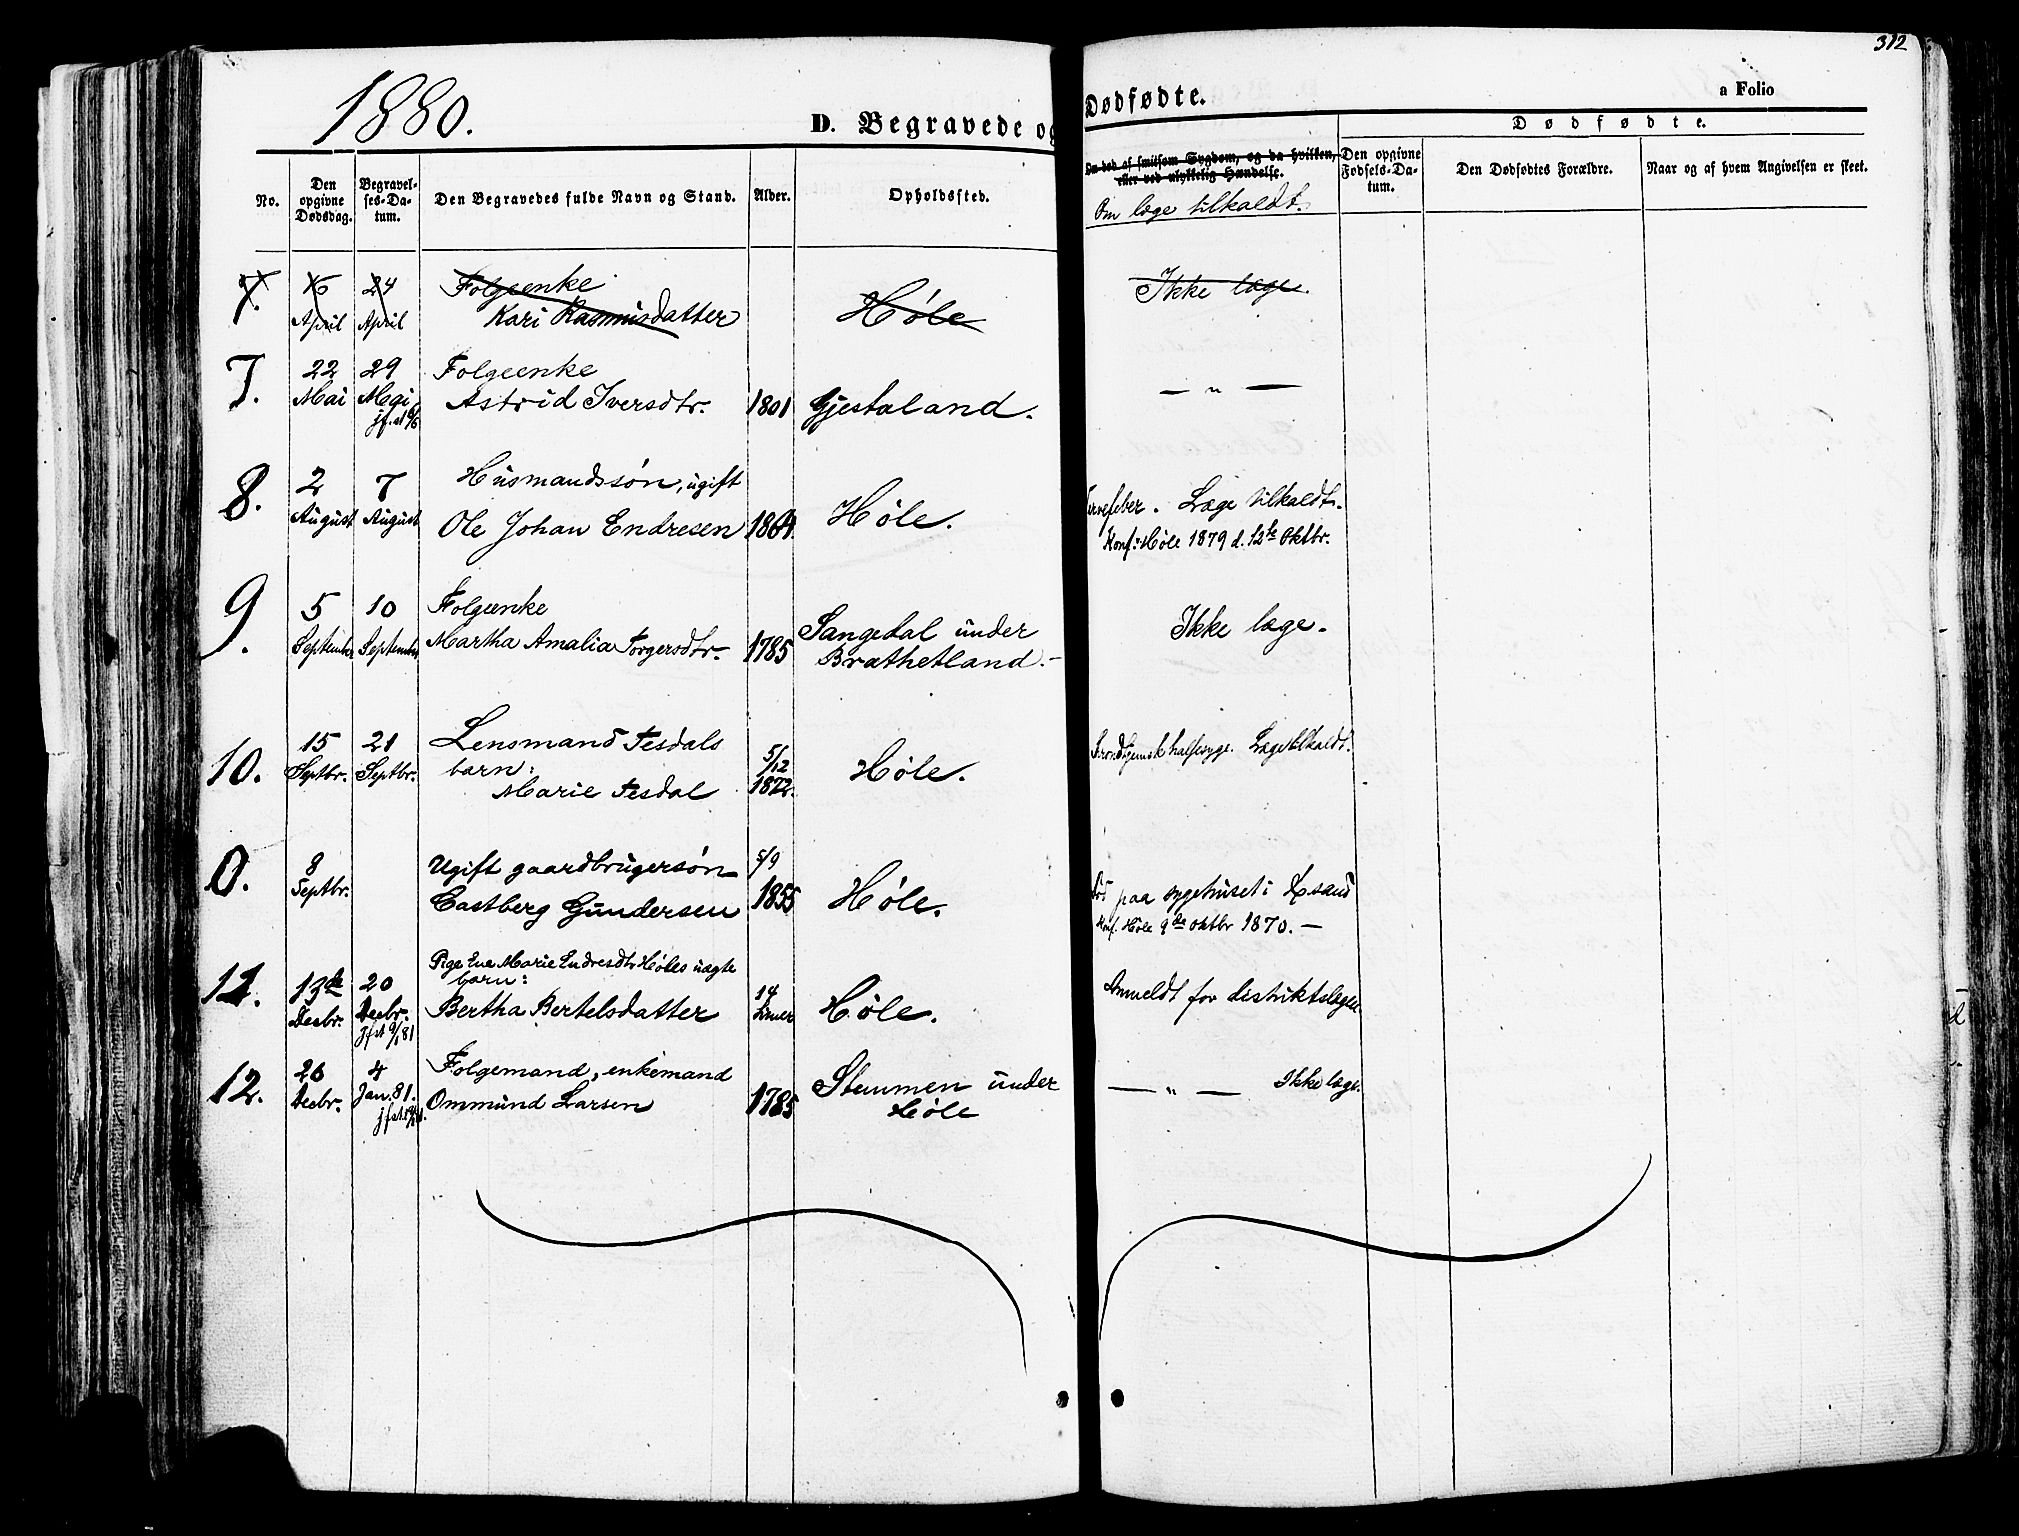 312
1880.
D. Begravede og
Dødfødte.
a Folio
No.
Den opgivne Dødsdag.
Begravelses-Datum.
Den Begravedes fulde Navn og Stand.
Alder.
Opholdssted.
Om død af smitsom Sygdom, og da hvilken, eller ved ulykkelig Hændelse.
Om læge tilkaldt.
Dødfødte.
Den opgivne Fødsels-Datum.
Den Dødfødtes Forældre.
Naar og af hvem Angivelsen er skeet.
7. 16 April 24 April Folgeenke
Kari Rasmusdatter Høle Ikke læge.
7. 22 Mai 29 Mai Folgeenke
Astrid Iversdtr. 1801 Gjestaland. — " —
8. 2 August 7 August Husmandssøn, ugift
Ole Johan Endresen 1864 Høle. Læge tilkaldt.
Konf: Høle 1879 d. 12te Oktbr.
9. 5 September 10 September Folgeenke
Martha Amalia Torgersdtr. 1785 Sangedal under
Brathetland. Ikke læge.
10. 15 Septbr. 21 Septbr. Lensmand Tesdals
barn:
Marie Tesdal 5/12 1872. Høle. Læge tilkaldt.
0. 8 Septbr. Ugift gaardbrugersøn
Castberg Gundersen 5/9 1855 Høle. Død paa sygehuset i Xsand
Konf. Høle 9de oktbr 1870. —
11. 13de Decbr. 20 Decbr. jfst 9/1 81 Pige Ene Marie Endresdtr Høles uægte
barn:
Bertha Bertelsdatter 14 timer Høle. Anmeldt for distriktslægen.
12. 26 Decbr. 4 Jan. 81. Folgemand, enkemand
Ommund Larsen 1785 Stemmen under
Høle — " — Ikke læge.